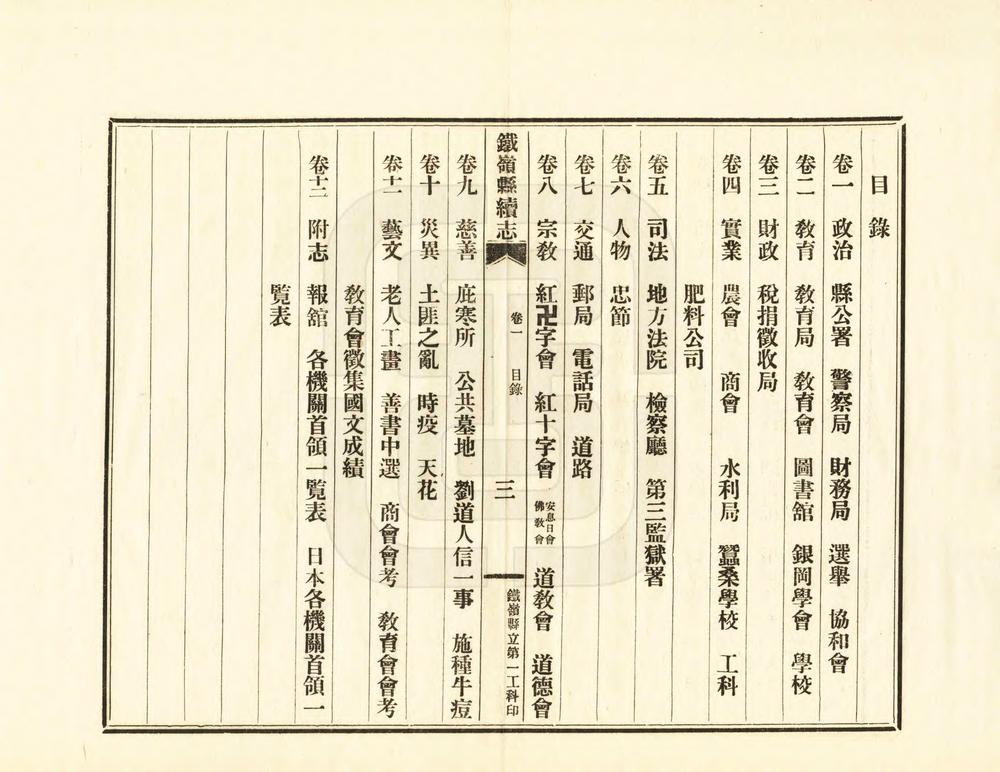 目錄
卷一 政治 縣公署 警察局 財務局 選舉 協和會
卷二 教育 教育局 教育會 圖書館 銀岡學會 學校
卷三 財政 稅捐徵收局
卷四 實業 農會 商會 水利局 蠶桑學校 工科
肥料公司
卷五 司法 地方法院 檢察廳 第三監獄署
卷六 人物 忠節
卷七 交通 郵局 電話局 道路
卷八 宗教 紅卍字會 紅十字會 安息日會 佛教會 道教會 道德會
鐵嶺縣續志 卷一 目錄 三 鐵嶺縣立第一工科印
卷九 慈善 庇寒所 公共墓地 劉道人信一事 施種牛痘
卷十 災異 土匪之亂 時疫 天花
卷十一 藝文 老人工畫 善書中選 商會會考 教育會會考
教育會徵集國文成績
卷十二 附志 報館 各機關首領一覽表 日本各機關首領一
覽表